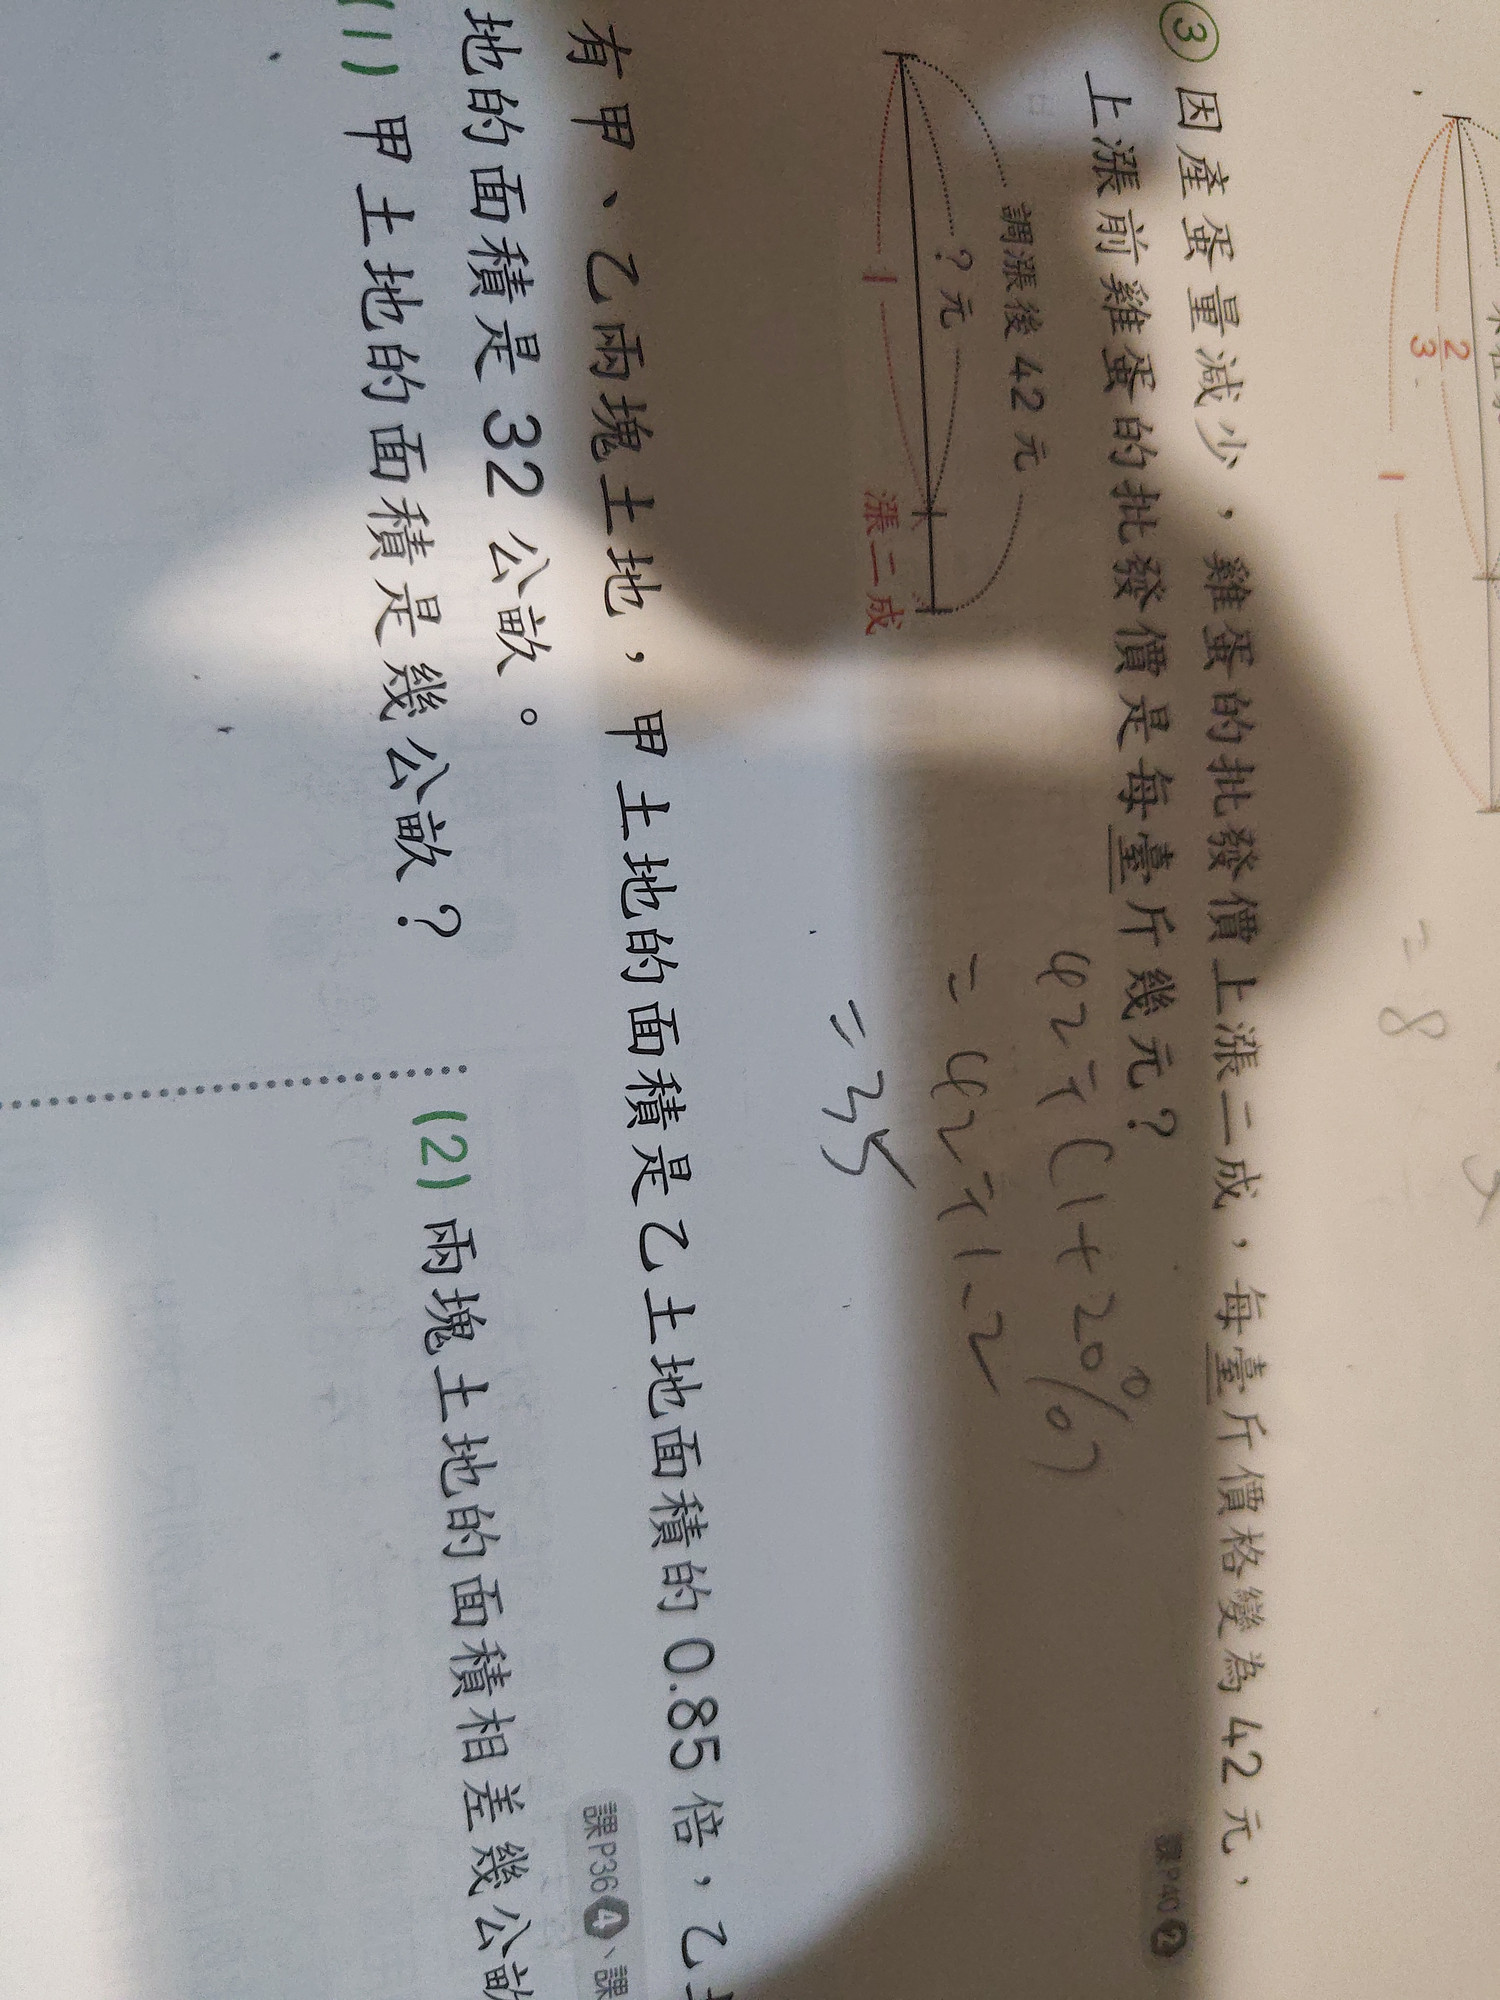 2
3
1
= 8
③ 因產蛋量減少，雞蛋的批發價上漲二成，每臺斤價格變為 42 元，
上漲前雞蛋的批發價是每臺斤幾元？
課P40 2
調漲後 42 元
? 元
1
漲二成
42÷(1+20%)
= 42÷1.2
= 35
有甲、乙兩塊土地，甲土地的面積是乙土地面積的 0.85 倍，乙土
地的面積是 32 公畝。
課P36 4、課
(1) 甲土地的面積是幾公畝？
(2) 兩塊土地的面積相差幾公畝